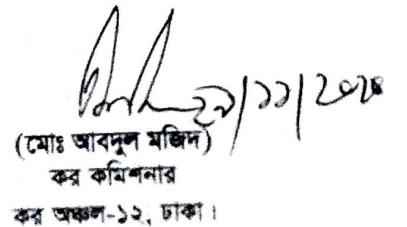 ২৯/১১/২০২০
(মোঃ আবদুল মজিদ)
কর কমিশনার
কর অঞ্চল-১২, ঢাকা।